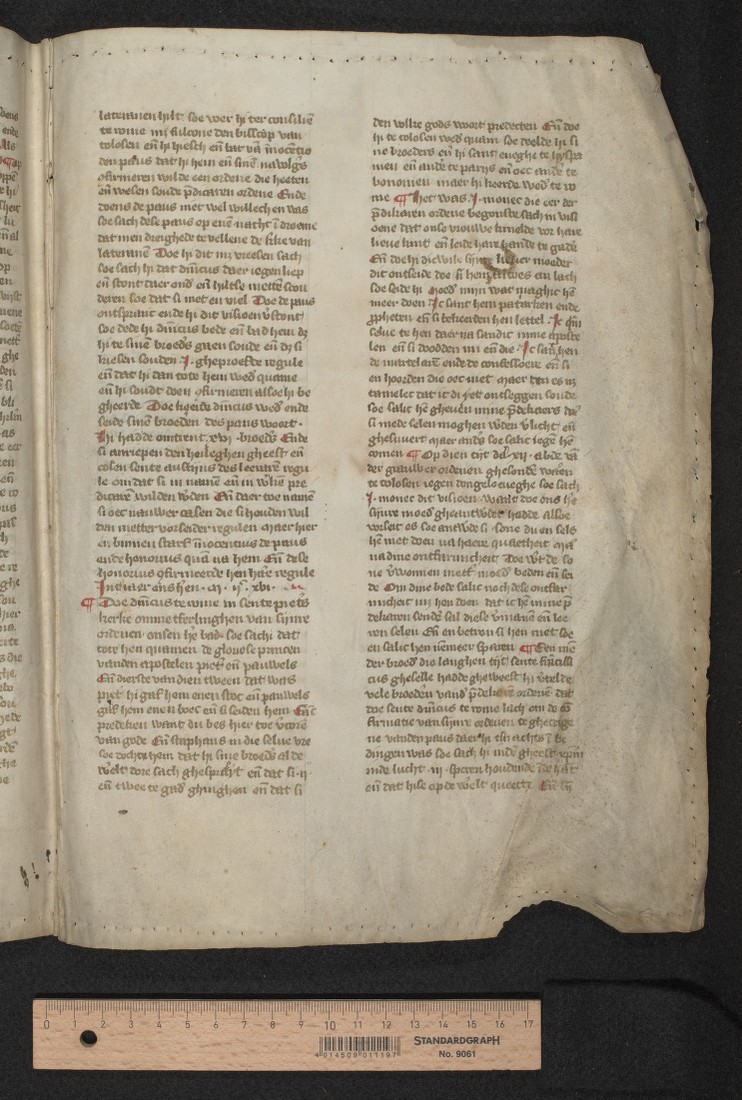 lateranen hilt soe wer hi ter consilie
te rome mz fulcone den bisscop van
tolosen en̄ hi hiesch en̄ bat vā inocētio
den paus dat hi hem en̄ sinē navolgē
ofirmeren wilde een ordene die heeten
en̄ wesen soude p̄dicarē ordene Ende
doens de paus niet wel willech en was
soe sach dese paus op enē nacht ī drome
dat men dreighede te vellene de kike van
lateranē Doe hi dit mz vreesen sach
soe sach hi dat dnīcus daer ieghen liep
en̄ stont daer ond en̄ hiltse mettē scou
deren soe dat si niet en viel Doe de paus
ontspranc ende hi dit visioen vstont
soe dede hi dnīcus bede en̄ bad hem dz
hi te sinē broedē gaen soude en̄ dz si
kiesen souden I gheproefde regule
en̄ dat hi dan tote hem wed quame
en̄ hi soudt doen ofirmeren alsoe hi be
gheerde Doe keerde dnīcus wed ende
seide sinē broeden des paus woort
Hi hadde omtrent xvi broedē Ende
si anriepen den heileghen gheest en̄
colen sente austijns des leeraers regu
le om dat si in namē en̄ in wkē pre
dicarē wilden wden En̄ daer toe namē
si oec nauwer
dan metter vorseider regulen Maer hier
en binnen starf inocentius de paus
ende honorius quā na hem En̄ dese
honorius ofirmeerde hen hare regule
Int iaer ons hen m cc xvi
¶ Doe dnīcus te rome in sente piet̄s
kerke om sterkinghen van sijnre
ordenen onsen he bad soe sach dat
tote hem quamen de gloriose princen
vanden apostelen piet en̄ pauwels
En̄ dierste van dien tween dat was
piet hi gaf hem enen stoc en̄ pauwels
gaf hem enen boec en̄ si seiden hem
predeken want du bes hier toe vcorē
van gode En̄ staphans in die selve vre
soe dochte hem dat hi sine broedē al de
welt dore sach ghespreit en̄ dat si ii
en̄ twee te gad ghinghen en̄ dat si
den volke gods woort predecten En̄ doe
hi te tolosen wed quam soe deelde hi si
ne broeders en̄ hi sant eneghe te hyspa
nien en̄ ande te parijs en̄ oec ande te
bononien maer hi keerde wed te ro
me ¶ Het was I monec die eer der
p̄dikaren ordene begonste sach in visi
oene dat onse vrouwe knielde vor hare
lieve kint en̄ leide hare hande te gad
En̄ doe hi dicwile sijnre liever moeder
dit ontseide doe si hem altoes an lach
soe seide hi Moed mijn wat maghic hē
meer doen Ic sant hem patriken ende
ppheten en̄ si bekeerden hen lettel Ic qm
selve te hen daer na sandic mine aposte
len en̄ si dooden mi en̄ die Ic sant hen
de martelarē ende de confessoere en̄ si
en hoorden die oec niet Maer
tamelec dat ic di iet ontseggen soude
soe salic hē gheven mine p̄dekaers
si mede selen moghen wden vlicht en̄
ghesuvert maer anders soe salic ieghē hē
comen ¶ Op dien tijt
der grauwer ordenen ghesonden waren
te tolosen ieghen dongelovighe soe sach
I monec dit visioen
sijnre moed gheantwoert hadde alsoe
hē niet doen na
na dine ontfarmicheit
ne vwonnen mett moed beden en̄ sei
de Om dine bede salic noch dese ontfar
micheit mz hen doen dat ic hē mine p̄
dekaren sende sal diese vmanē en̄ lee
ren selen En̄ en betren si hen niet soe
en salic hen niemeer sparen ¶ Een min
der broed die langhen tijt sente francis
cus gheselle hadde gheweest hi vtelde
vele broeden vand p̄dekare ordenē dat
doe sente dnīcus te rome lach om de 9
firmatie van sijnre ordenen te ghecrige
ne vanden paus daer hi tsnachts ī be
dingen was soe sach hi inden gheest xpm̄
inde lucht iii speren houdende ī de hāt
en̄ dat hise op de welt quecte En̄
STANDARDGRAPH
No. 9061
4 014509 011197
0 1 2 3 4 5 6 7 8 9 10 11 12 13 14 15 16 17